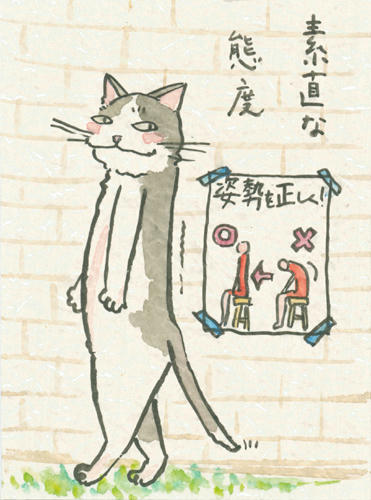 素直な
態度
姿勢を正しく!!